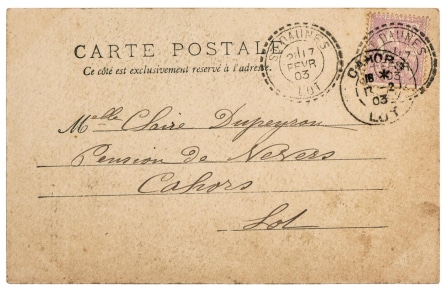 CARTE POSTALE
Ce côté est exclusivement reservé à l'adresse
St DAUNES
17
FEVR
03
LOT
CAHORS
17-2
03
LOT
Melle Claire Dupeyron
Pension de Nevers
Cahors
Lot